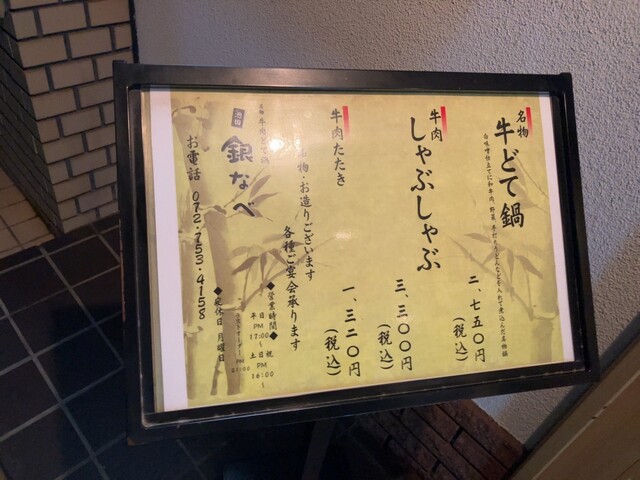 名物
牛どて鍋
白味噌仕立てに和牛肉、野菜、手打ちうどんなどを入れて煮込んだ名物鍋
二、七五〇円
(税込)
牛肉
しゃぶしゃぶ
三、三〇〇円
(税込)
牛肉たたき
一、三二〇円
(税込)
物・お造りございます
各種ご宴会承ります
名物 牛肉どて鍋
池田
銀なべ
お電話 072・753・4158
◆営業時間◆
平日 PM 17:00〜
土日祝 PM 16:00〜
PM 21:00
◆定休日 月曜日